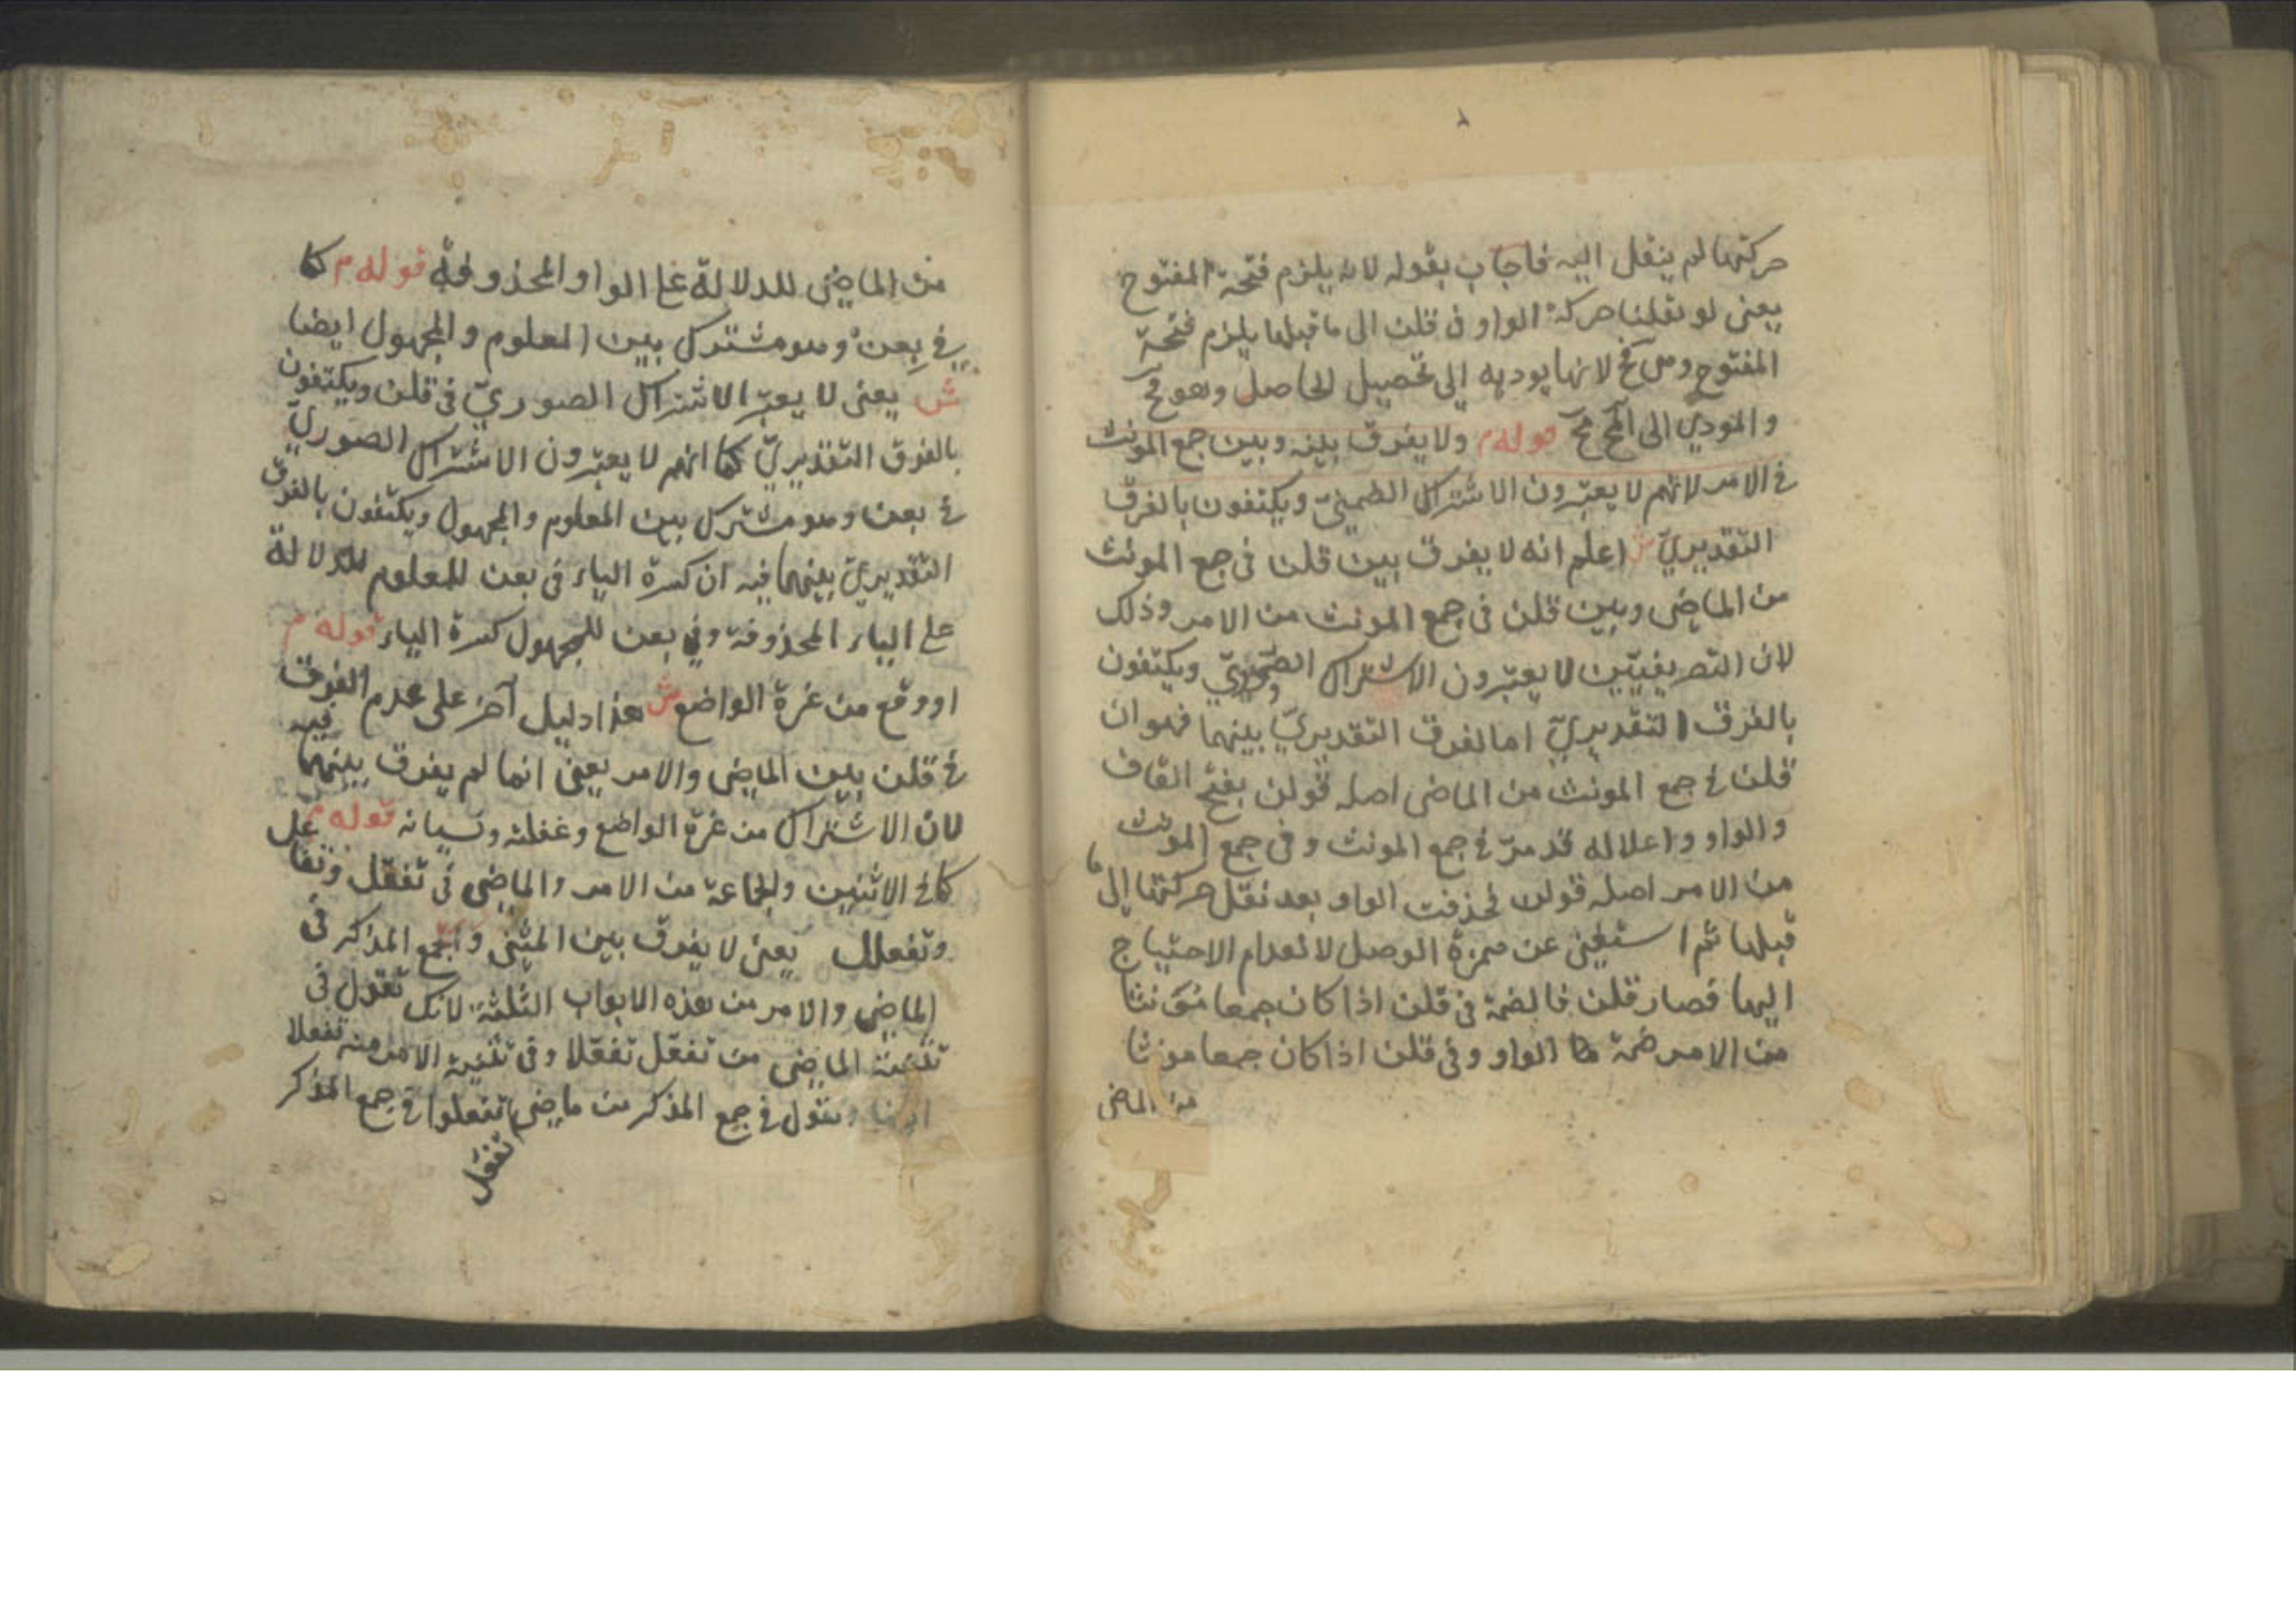 حركتها لم ينقل اليه فاجاب بقوله لانه يلزم فتحة المفتوح
يعنى لو نقلنا حركة الواو فى قلن الى ما قبلها يلزم فتحة
المفتوح وهى مح لانها يوديه الى تحصيل الحاصل وهو مح
والمودي الى المح مح قوله م ولا يفرق بينه وبين جمع المونث
فى الامر لانهم لا يعتبرون الاشتراك الضمنيّ ويكتفون بالفرق
التقديريّ ش اعلم انه لا يفرق بين قلن فى جمع المونث
من الماضى وبين قلن فى جمع المونث من الامر وذلك
لان التصريفيّين لا يعتبرون الاشتراك ويكتفون
بالفرق التقديريّ اما الفرق التقديريّ بينهما فهو ان
قلن فى جمع المونث من الماضى اصله قولن بفتح القاف
والواو واعلاله قد مرّ فى جمع المونث وفى جمع المونث
من الامر اصله قولن فحذفت الواو بعد نقل حركتها الى ما
قبلها ثم استغنى عن همزة الوصل لانعدام الاحتياج
اليها فصار قلن فالضمة فى قلن اذا كان جمعا مؤنثا
من الامر ضمة الواو وفى قلن اذا كان جمعا مونثا
من الماضى
من الماضى للدلالة على الواو المحذوفة قوله م كما
فى بعن وهو مشترك بين المعلوم والمجهول ايضا
ش يعنى لا يعتبر الاشتراك الصوريّ فى قلن ويكتفون
بالفرق التقديريّ كما انهم لا يعتبرون الاشتراك الصوريّ
فى بعن وهو مشترك بين المعلوم والمجهول ويكتفون بالفرق
التقديريّ بينهما فيه ان كسرة الباء فى بعن للمعلوم للدلالة
على الياء المحذوفة وفى بعن للمجهول كسرة الياء قوله م
او وقع من غرة الواضع ش هذا دليل آخر على عدم الفرق
فى قلن بين الماضى والامر يعنى انما لم يفرق بينهما فيه
لان الاشتراك من غرة الواضع وغفلته ونسيانه قوله م
كما فى الاثنين والجماعة من الامر والماضى فى تفعّل وتفاعل
وتفعلل يعنى لا يفرق بين المثنى والجمع المذكر فى
الماضى والامر من هذه الابواب الثلثة لانك تقول فى
تثنية الماضى من تفعّل تفعّلا وفى تثنية الامر منه تفعلا
ايضا وتقول فى جمع المذكر من ماضى تفعلوا فى جمع المذكر
تفعّل